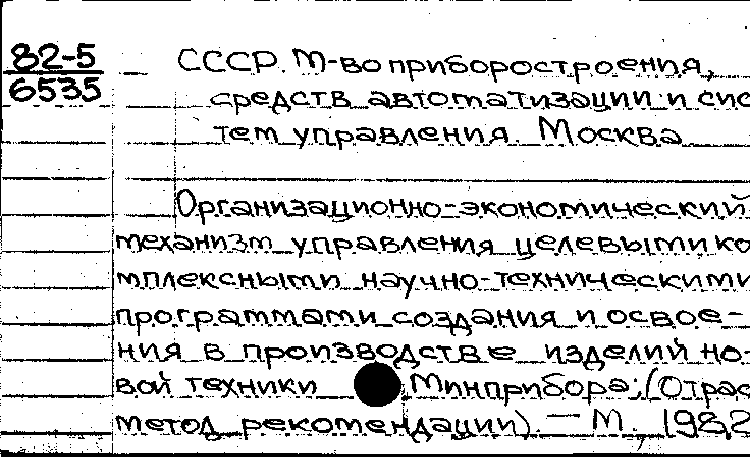 82-5
6535
СССР. М-во приборостроения,
средств автоматизации и сис
тем управления. Москва
Организационно-экономический
механизм управления целевыми ко
мплексными научно-техническими
программами создания и освое-
ния в производстве изделий но-
вой техники Минприбора; (Отрас
метод рекомендации). — М., 1982